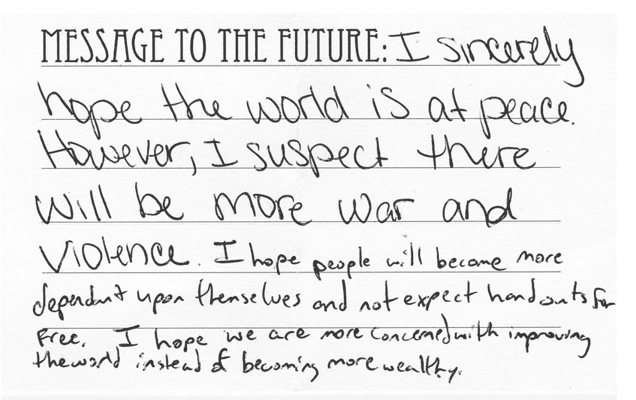 MESSAGE TO THE FUTURE: I sincerely
hope the world is at peace.
However, I suspect there
will be more war and
violence. I hope people will become more
dependant upon themselves and not expect handouts for
free. I hope we are more concerned with improving
the world instead of becoming more wealthy.